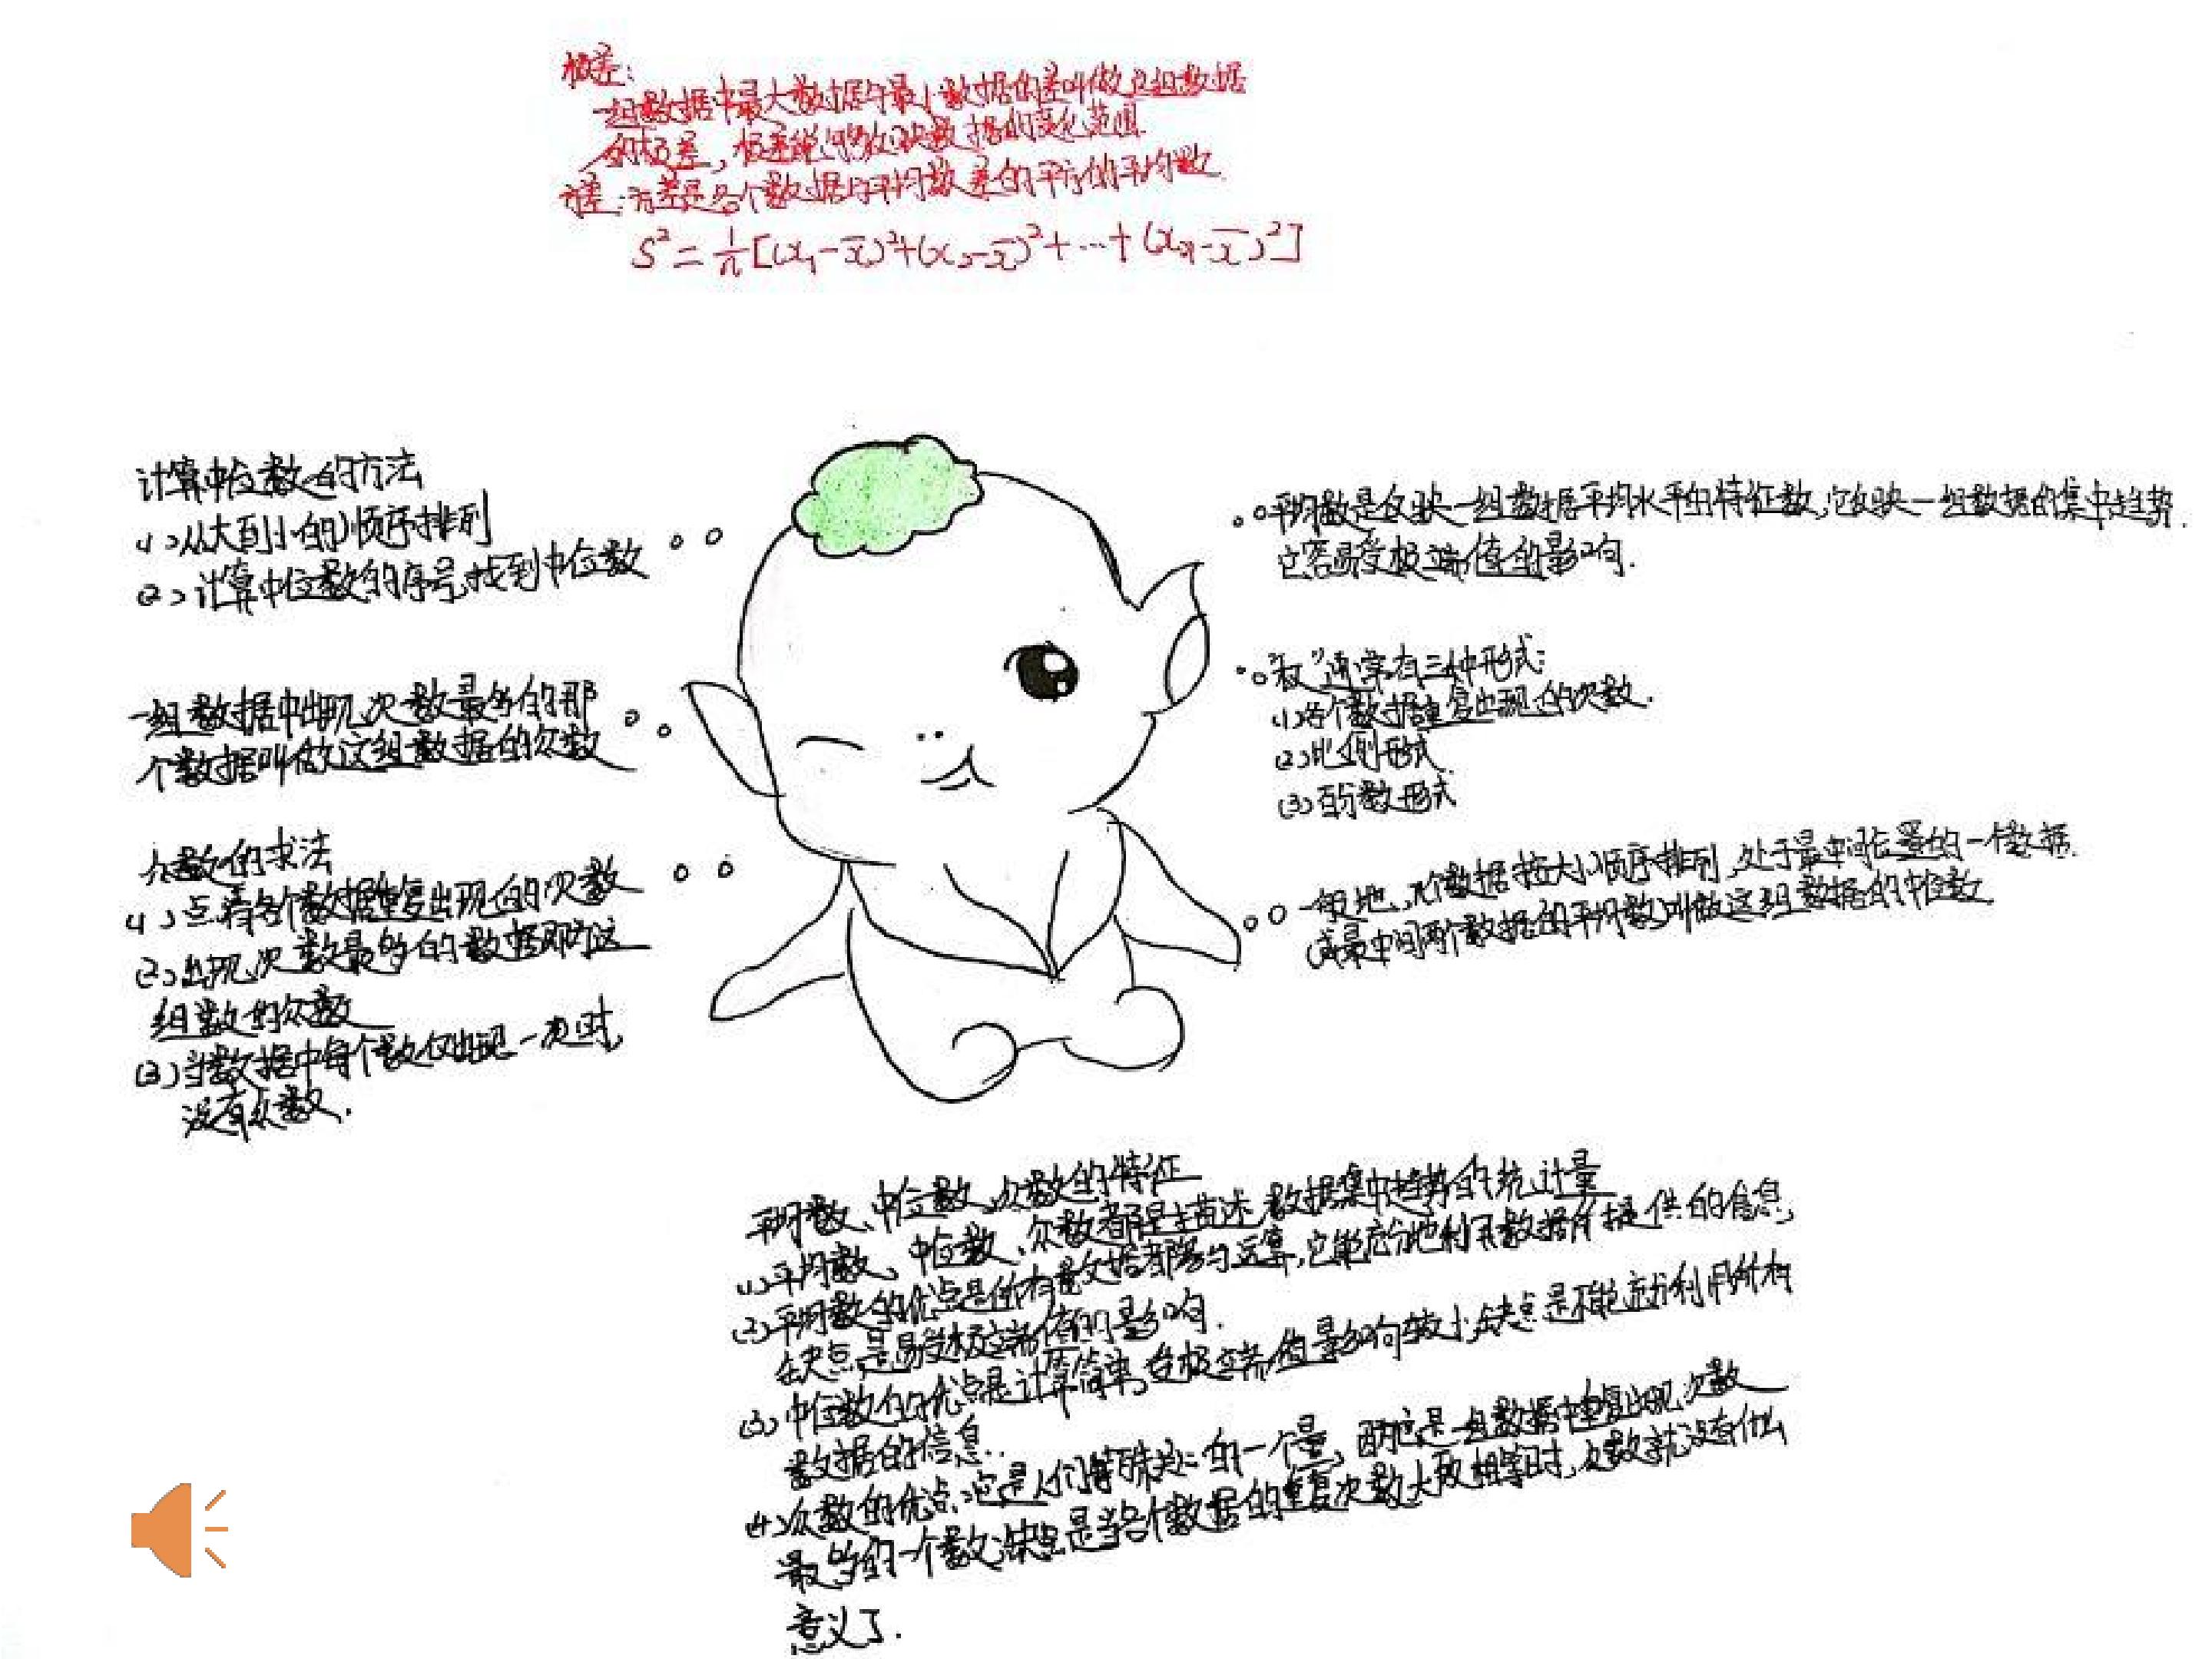 极差:
一组数据中最大数据与最小数据的差叫做这组数据
的极差,极差能够反映数据的变化范围.
方差:方差是各个数据与平均数差的平方的平均数.
S²=1/n[(x₁-x̄)²+(x₂-x̄)²+…+(xₙ-x̄)²]
计算中位数的方法
(1)从大到小的顺序排列
(2)计算中位数的序号,找到中位数
一组数据中出现次数最多的那
个数据叫做这组数据的众数
众数的求法
(1)点着各个数据重复出现的次数
(2)出现次数最多的数据即为这
组数的众数
(3)当数据中每个数仅出现一次时,
没有众数.
平均数是反映一组数据平均水平的特征数,它反映一组数据的集中趋势.
它容易受极端值的影响.
"权"通常有三种形式:
(1)各个数据重复出现的次数.
(2)比例形式
(3)百分数形式
一般地,n个数据按大小顺序排列,处于最中间位置的一个数据
(或最中间两个数据的平均数)叫做这组数据的中位数
平均数、中位数、众数的特征
(1)平均数、中位数、众数都是描述数据集中趋势的统计量
(2)平均数的优点是所有数据都参与运算,它能充分地利用数据所提供的信息,
缺点是易受极端值的影响.
(3)中位数的优点是计算简单,受极端值影响较小,缺点是不能充分利用所有
数据的信息.
(4)众数的优点:它是人们特别关心的一个量,它是一组数据中重复出现次数
最多的一个数;缺点是当各个数据的重复次数大致相等时,众数就没有什么
意义了.